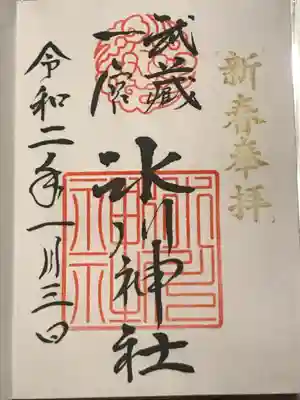 新春奉拝
武蔵
一宮
氷川神社
令和二年一月三日